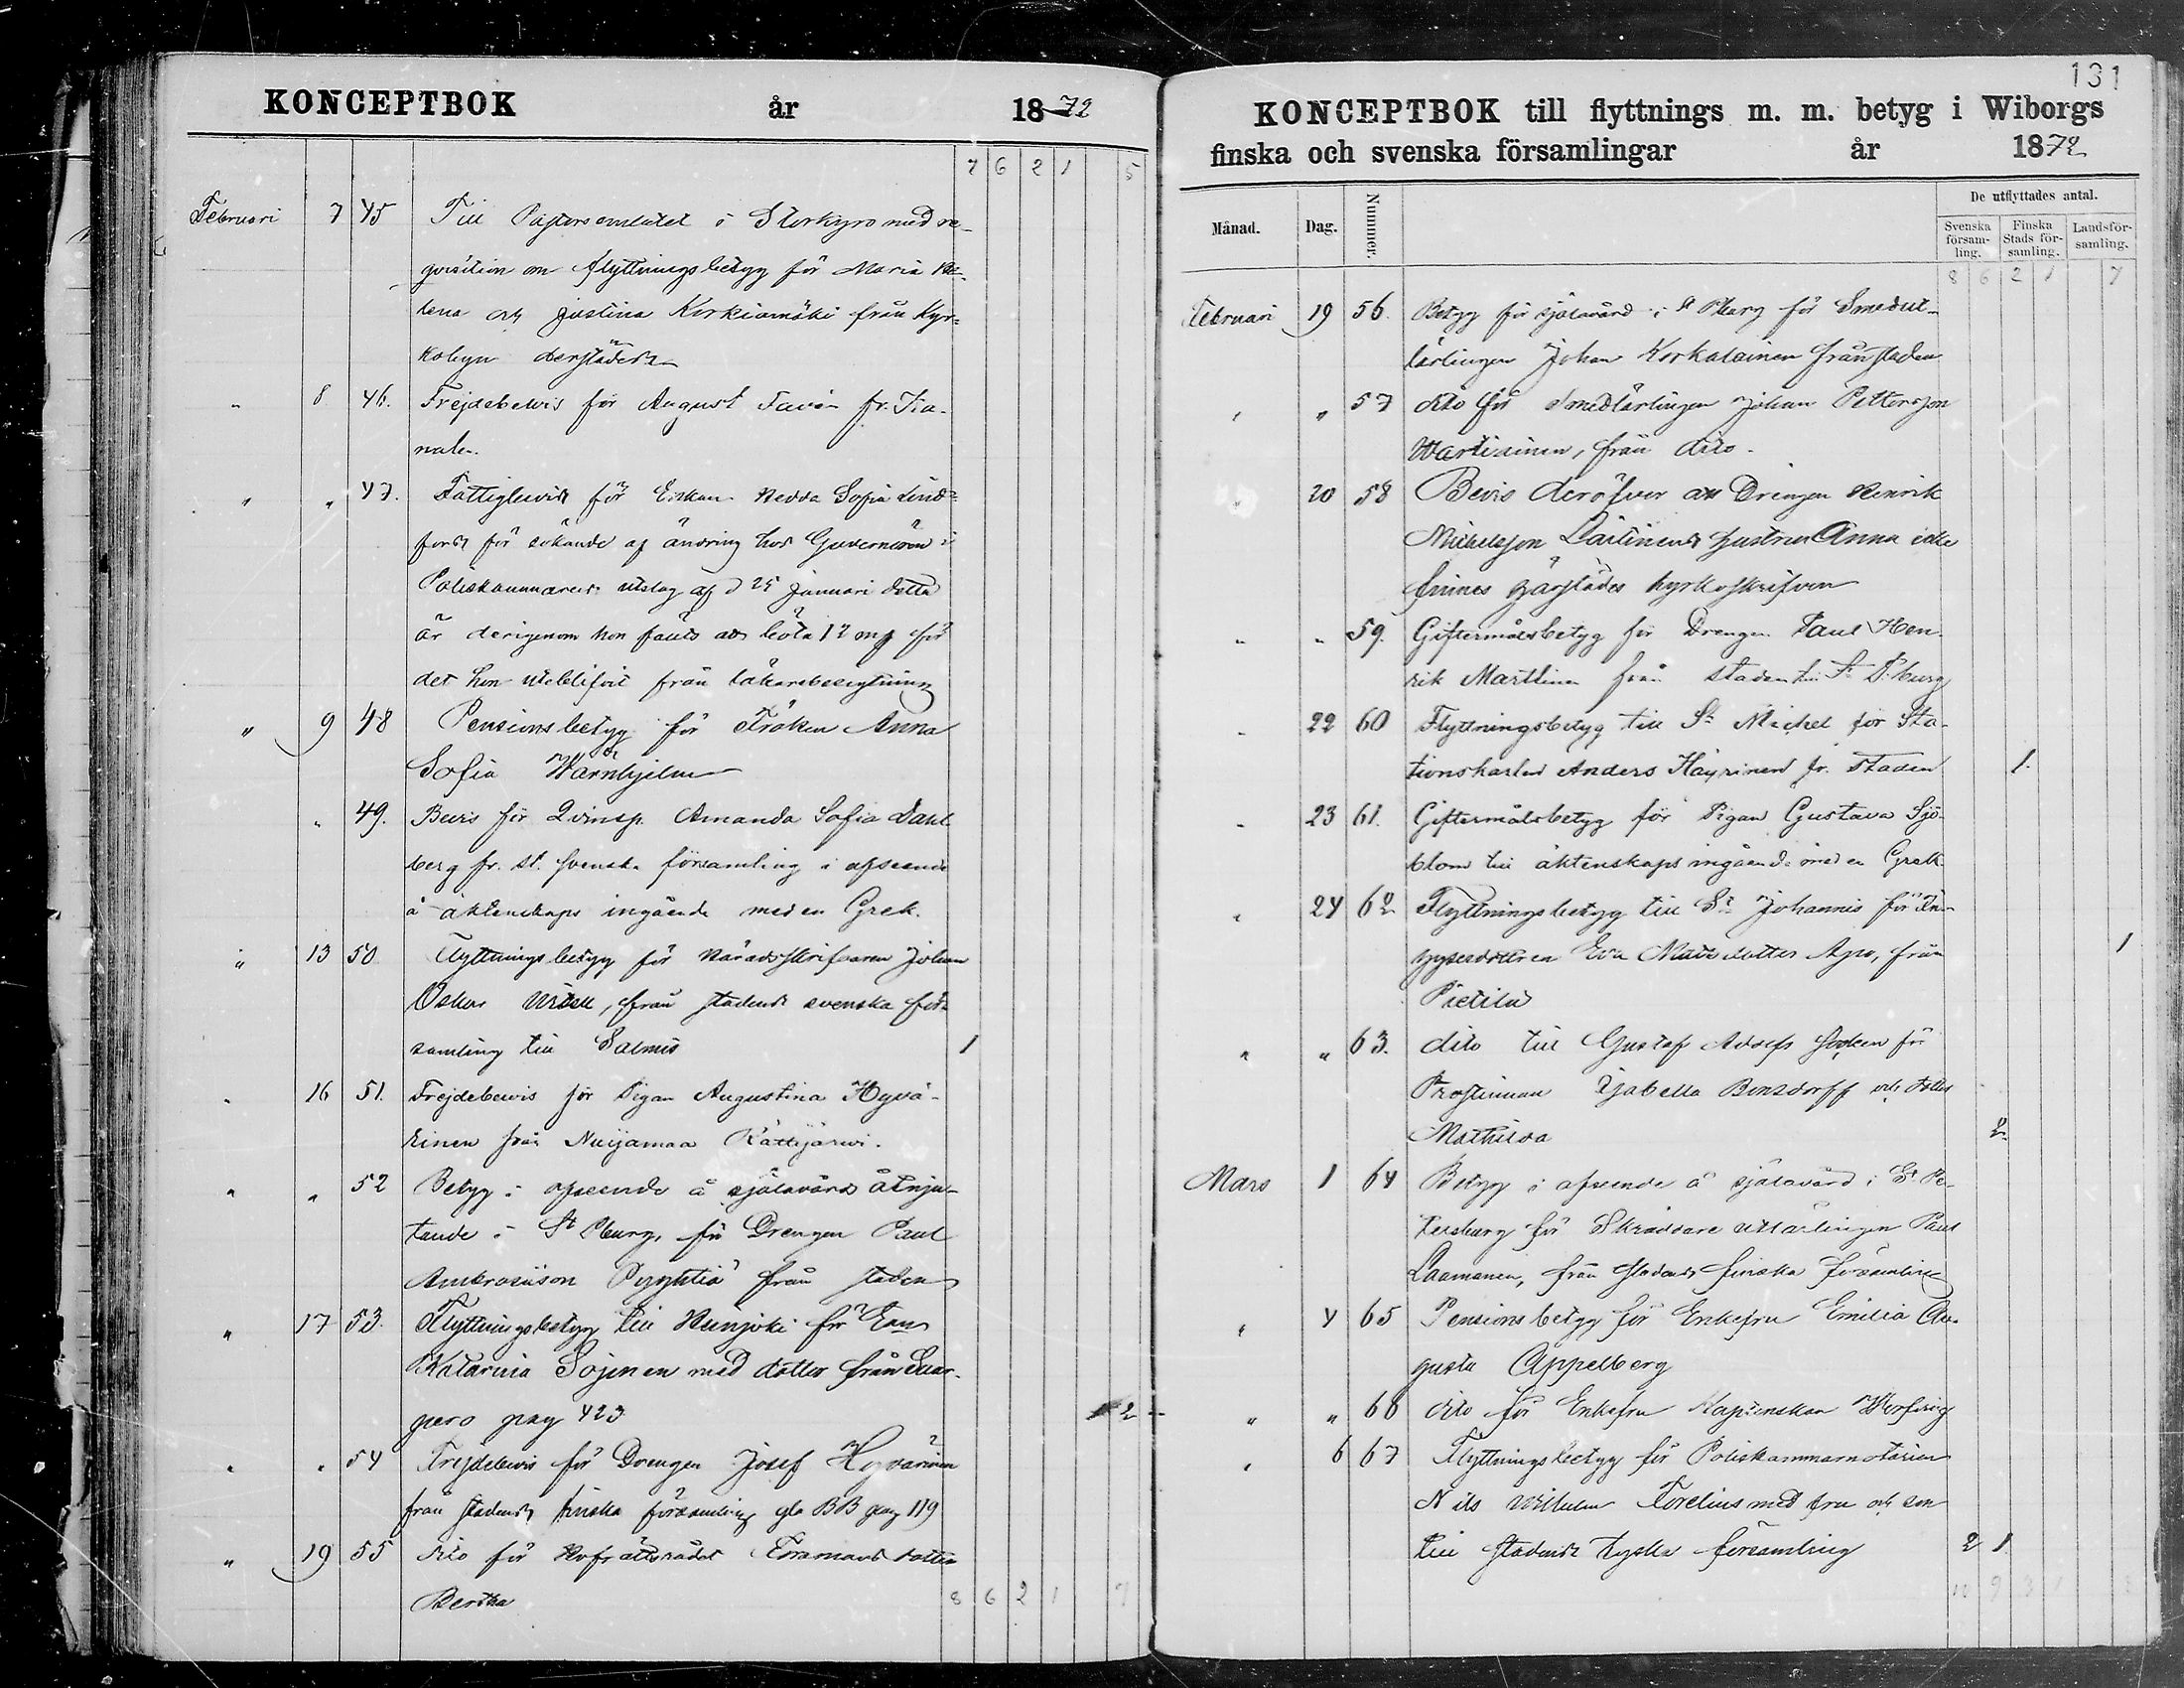 KONCEPTBOK år 1872
7 6 2 1 5
Februari 7 45 Till Pastorsembetet i Storkyro med re-
qvisition om flyttningsbetyg för Maria He-
lena och Justina Korkiamäki från Kyr-
kobyn derstädes
" 8 46. Frejdebevis för August Favén fr. Ka-
nalen.
" " 47. Fattigbevis för Enkan Hedda Sofia Lind-
fors för sökande af ändring hos Guvernören i
Poliskammarens utslag af d 25 Januari detta
år derigenom hon fälts att böta 12 mg för
det hon uteblifvit från läkarebesigtning
" 9 48 Pensionsbetyg för Fröken Anna
Sofia Wärnhjelm
" 49. Bevis för Qvinsp. Amanda Sofia Dahl-
berg fr. st. svenska församling i afseende
å äktenskaps ingående med en Grek.
" 13 50 Flyttningsbetyg för Häradsskrifvaren Johan
Oskar, från stadens svenska för-
samling till Salmis 1
" 16 51. Frejdebevis för Pigan Augustina Hyvä-
rinen från Nuijamaa Rättijärvi.
" " 52 Betyg i afseende å själavårds åtnju-
tande i St Pburg, för Drengen Paul
Ambrosiison Pyyhtiä från staden
" 17 53. Flyttningsbetyg till Heinjoki för Enk
Katarina Sojinen med dotter från Suur-
pero pag 423 2
" " 54 Frejdebevis för Drengen Josef Hyvärinen
från stadens finska församling gla BB pag 119
" 19 55 dito för Hofrättsrådet Foramans dotter
Bertha 8 6 2 1 7
131
KONCEPTBOK till flyttnings m. m. betyg i Wiborgs
finska och svenska församlingar år 1872
Månad. Dag. Nummer. De utflyttades antal.
Svenska försam-ling. Finska Stads för-samling. Landsför-samling.
8 6 2 1 7
Februari 19 56. Betyg för själavård i St Pburg för Smedut-
lärlingen Johan Korkalainen från staden
" " 57 dito för smedlärlingen Johan Pettersson
Wartiainen, från dito.
" 20 58 Bevis deröfver att Drengen Henrik
Michelsson Laitinens hustru Anna icke
finnes härstädes kyrkoskrifven
" " 59. Giftermålsbetyg för Drengen Paul Hen-
rik Marttinen från staden till St P.burg
" 22 60 Flyttningsbetyg till St Michel för Sta-
tionskarlen Anders Häyrinen fr. staden 1.
" 23 61. Giftermålsbetyg för Pigan Gustava Sjö-
blom till äktenskaps ingående med en Grek
" 24 62 Flyttningsbetyg till St Johannis för In-
hysesdottren Eva Mattsdotter Apo, från 1
Pietilä
" " 63. dito till Gustaf Adolfs socken för
Prostinnan Isabella Bonsdorff och dotter
Mathilda 2
Mars 1 64 Betyg i afseende å själavård i St Pe-
tersburg för Skräddareutlärlingen Paul
Laamanen, från stadens finska församling
" 4 65 Pensionsbetyg för Enkefru Emilia Au-
gusta Appelberg
" " 66 dito för Enkefru Kaptenskan
" 6 67 Flyttningsbetyg för Poliskammarnotarien
Nils Wilhelm Forelius med fru och son
till stadens tyska församling 2 1.
10 9 3 1 8